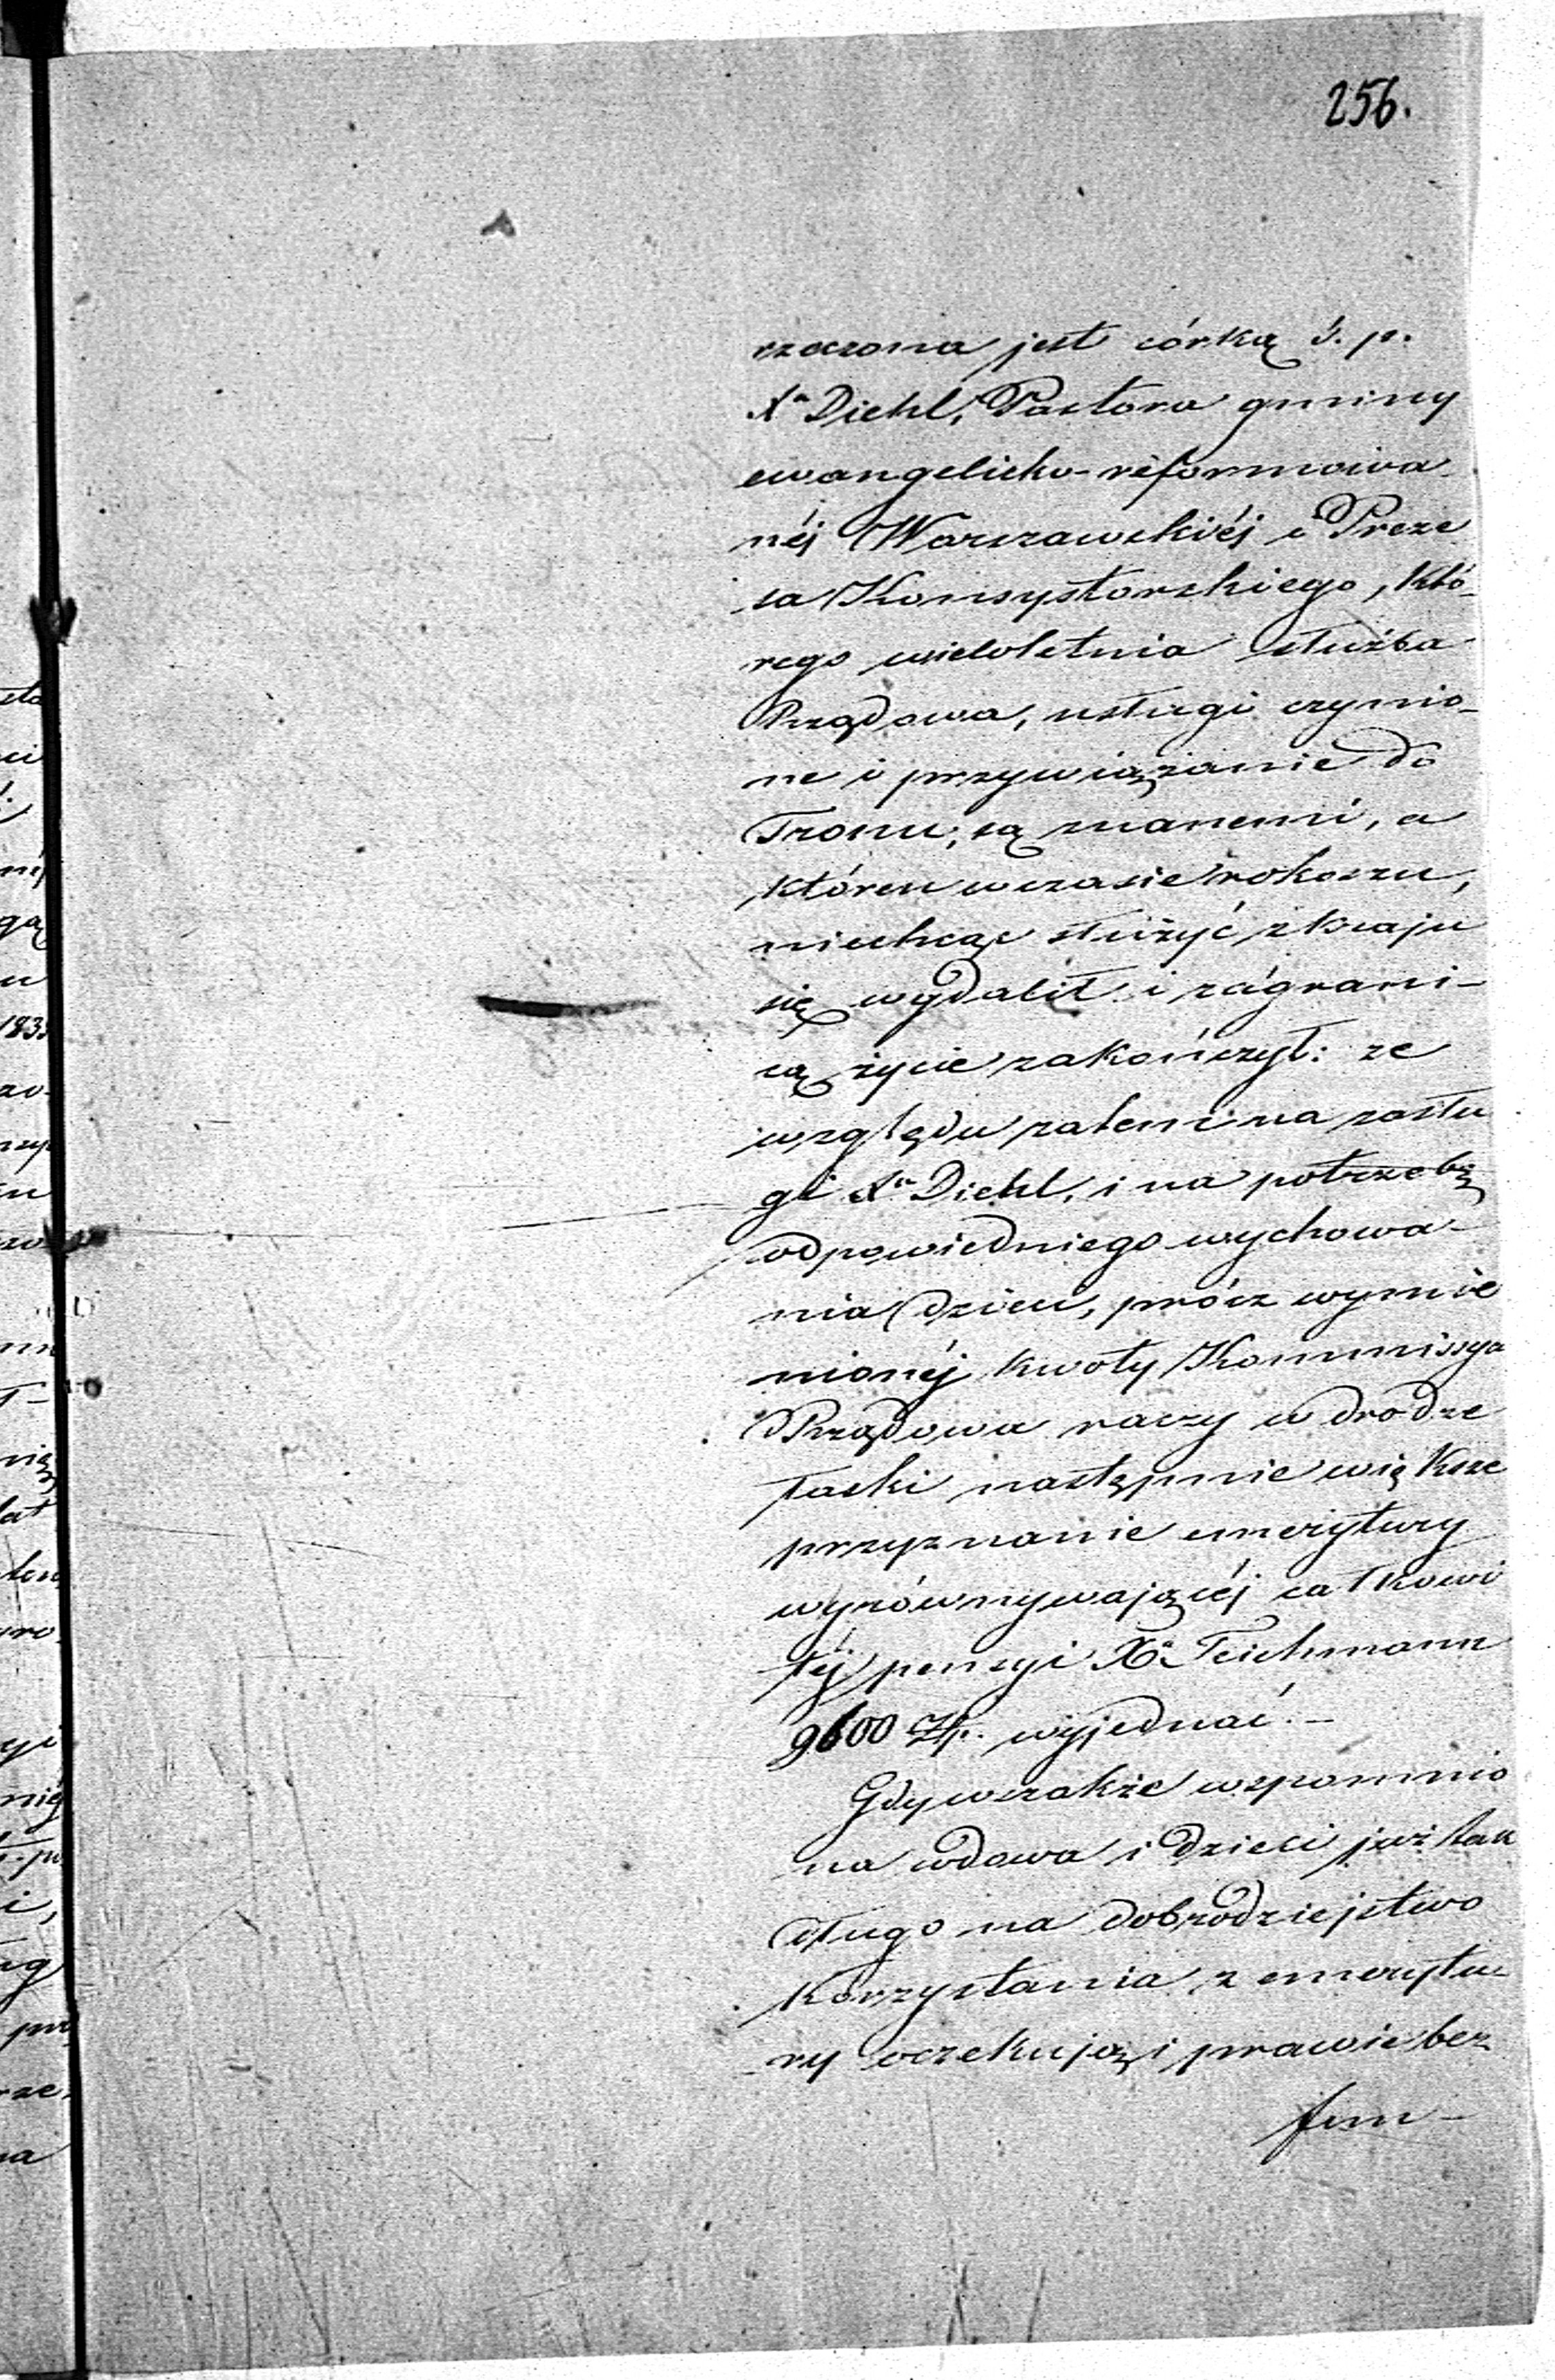 256.
rzeczona jest córką ś. p.
Xa Diehl, Pastora gminy
ewangelicko-reformowa
néj Warszawskiéj i Preze
sa Konsystorskiego, któ-
rego wieloletnia służba
Rządowa, usługi czynio-
ne i przywiązanie do
Tronu, są znanemi, a
któren w czasie rokoszu,
niechcąc służyć z kraju
się wydalił i zagrani-
cą życie zakończył: ze
względu zatem na zasłu
gi Xa Diehl, i na potrzebę
odpowiedniego wychowa-
nia dzieci, prócz wymie
nionéj kwoty Kommissya
Rządowa raczy w drodze
łaski następnie większe
przyznanie emerytury
wyrównywającéj całkowi
téj pensyi Xa Teichmann
9600 Złp. wyjednać. -
Gdy wszakże wspomnio
na wdowa i dzieci już tak
długo na dobrodziejstwo
korzystania z emerytu-
ry oczekują i prawie bez
fun-